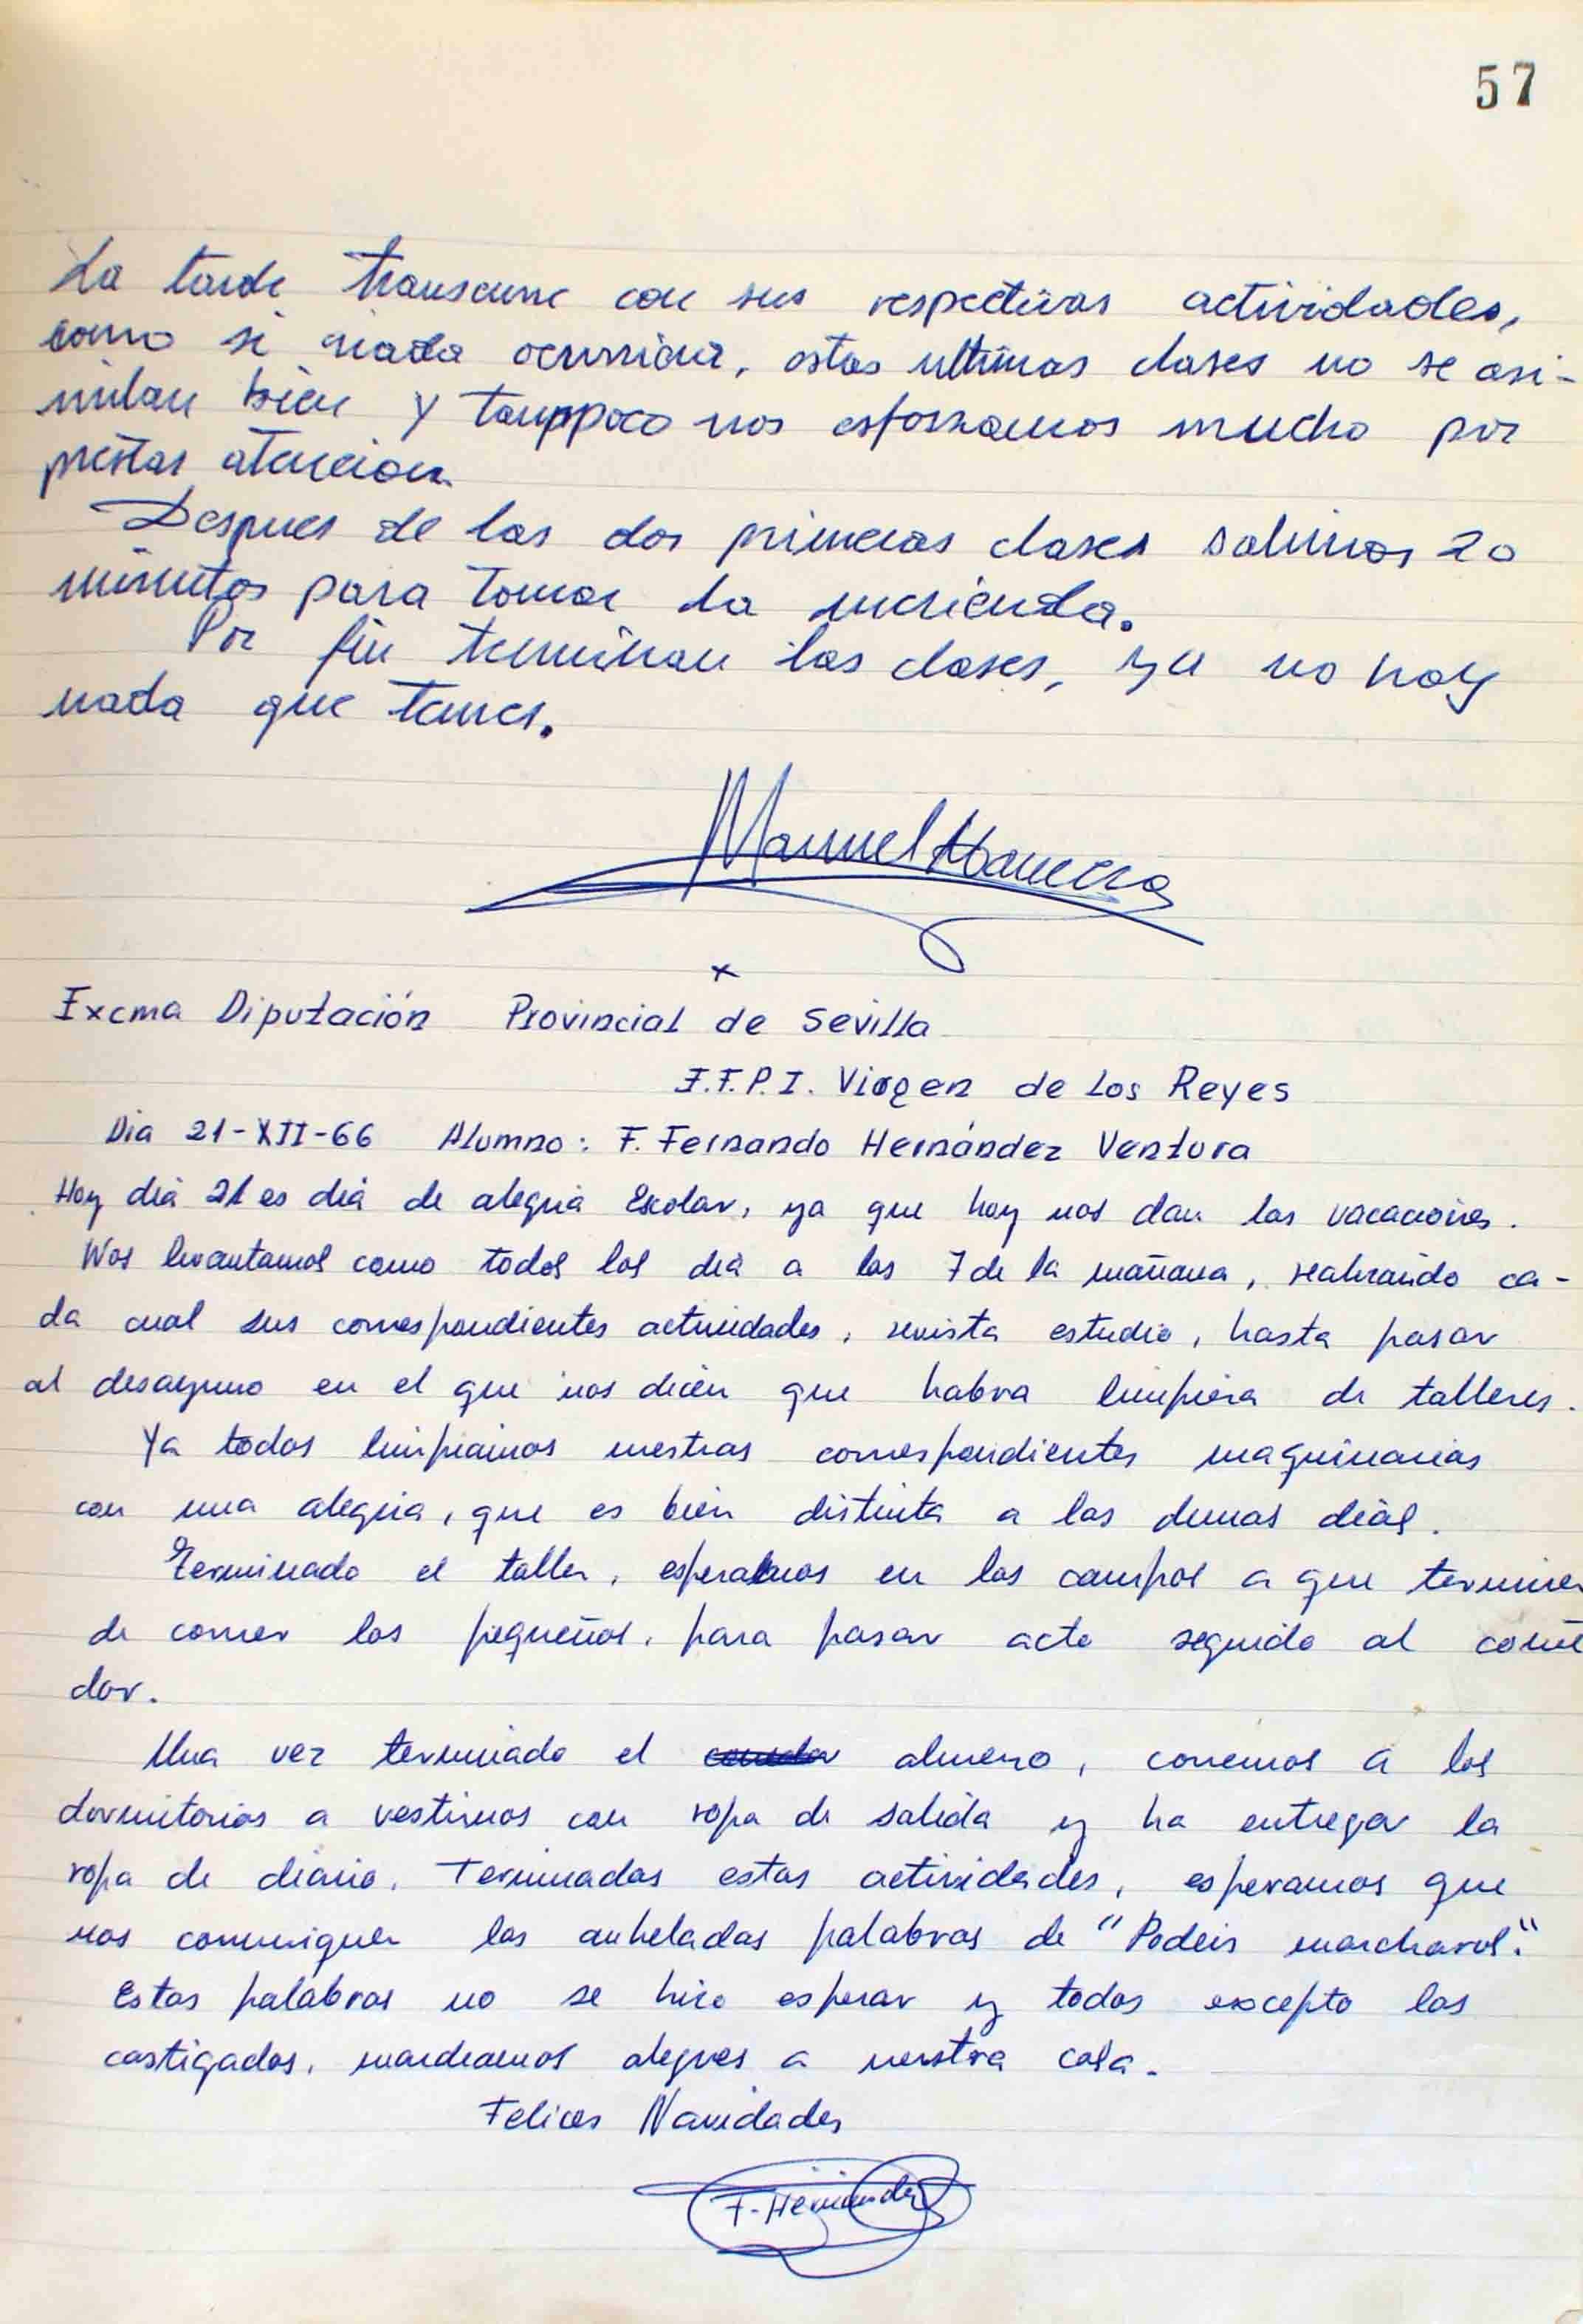 57
La tarde transcurre con sus respectivas actividades,
como si nada ocurriera, estas ultimas clases no se asi-
milan bien y tamppoco nos esforzamos mucho por
prestar atencion.
Despues de las dos primeras clases salimos 20
minutos para tomar la merienda.
Por fin terminan las clases, ya no hay
nada que temer.
Manuel
x
Excma Diputación Provincial de Sevilla
I.F.P.I. Virgen de Los Reyes
Dia 21-XII-66 Alumno: F. Fernando Hernández Ventura
Hoy dia 21 es dia de alegria Escolar, ya que hoy nos dan las vacaciones.
Nos levantamos como todos los dia a las 7 de la mañana, realizando ca-
da cual sus correspondientes actividades, revista estudio, hasta pasar
al desayuno en el que nos dicen que habra limpieza de talleres.
Ya todos limpiamos nuestras correspondientes maquinarias
con una alegria, que es bien distinta a las demas dias.
Terminado el taller, esperabamos en los campos a que terminen
de comer los pequeños, para pasar acto seguido al come
dor.
Una vez terminado el comedor almuerzo, corremos a los
dormitorios a vestirnos con ropa de salida y ha entregar la
ropa de diario. Terminadas estas actividades, esperamos que
nos comuniquen las anheladas palabras de "Podeis marcharos".
Estas palabras no se hizo esperar y todos excepto los
castigados, marchamos alegres a nuestra casa.
Felices Navidades
F. Hernández